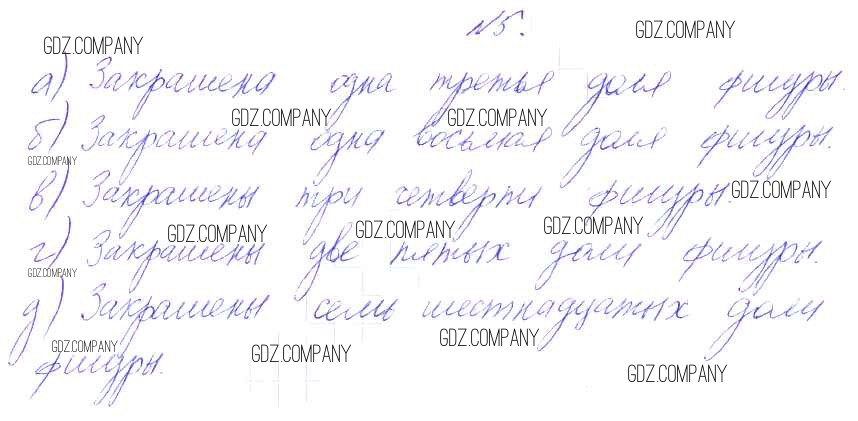 №5.
GDZ.COMPANY GDZ.COMPANY
а) Закрашена одна третья доля фигуры.
GDZ.COMPANY GDZ.COMPANY
б) Закрашена одна восьмая доля фигуры.
GDZ.COMPANY
в) Закрашены три четверти фигуры.
GDZ.COMPANY
GDZ.COMPANY GDZ.COMPANY GDZ.COMPANY
г) Закрашены две пятых доли фигуры.
GDZ.COMPANY
д) Закрашены семь шестнадцатых доли
GDZ.COMPANY GDZ.COMPANY GDZ.COMPANY
фигуры.
GDZ.COMPANY